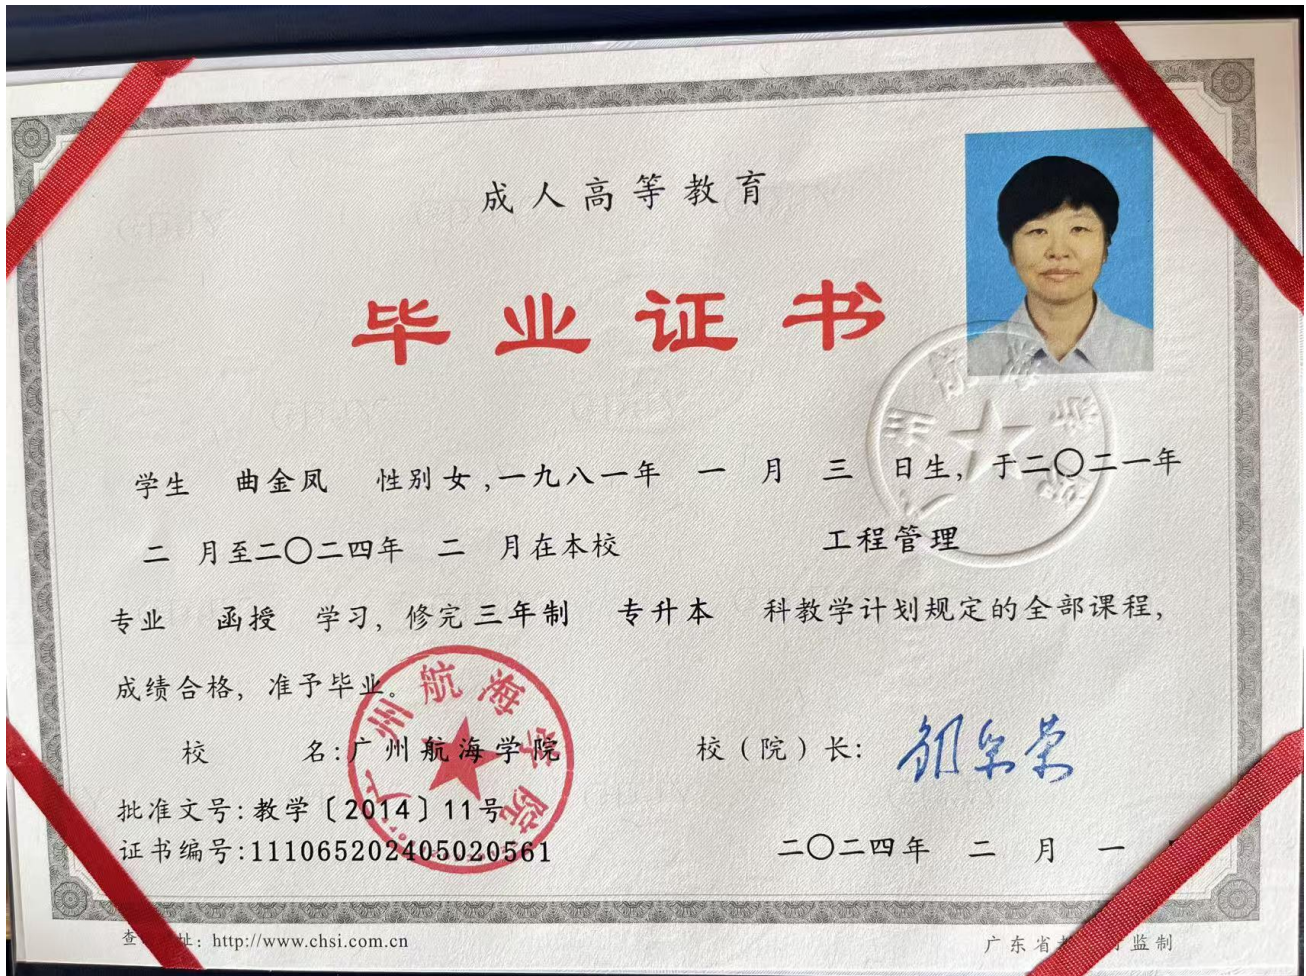 成人高等教育
毕业证书
学生 曲金凤 性别 女,一九八一年 一 月 三 日生, 于二〇二一年
二 月至二〇二四年 二 月在本校 工程管理
专业 函授 学习, 修完 三年制 专升本 科教学计划规定的全部课程,
成绩合格, 准予毕业。
校 名:广州航海学院 校(院)长:
批准文号:教学〔2014〕11号
证书编号:111065202405020561
二〇二四年 二 月 一
查 址: http://www.chsi.com.cn
广东省 监制
广州航海学院